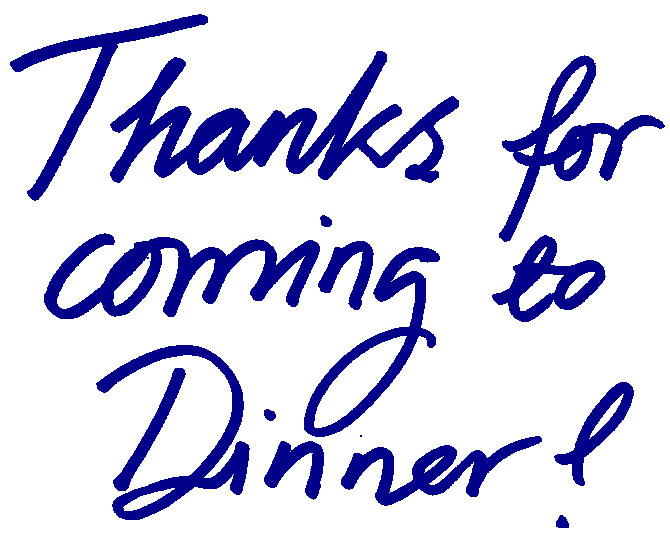 Thanks for
coming to
Dinner!